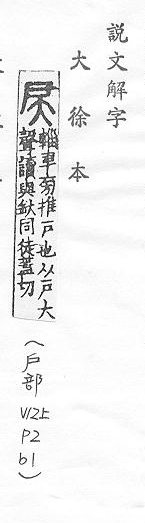 説文解字
大徐本
戾 輜車旁推戶也从戶大
聲讀與釱同徒蓋切
(戶部
V12上
P2
b1)